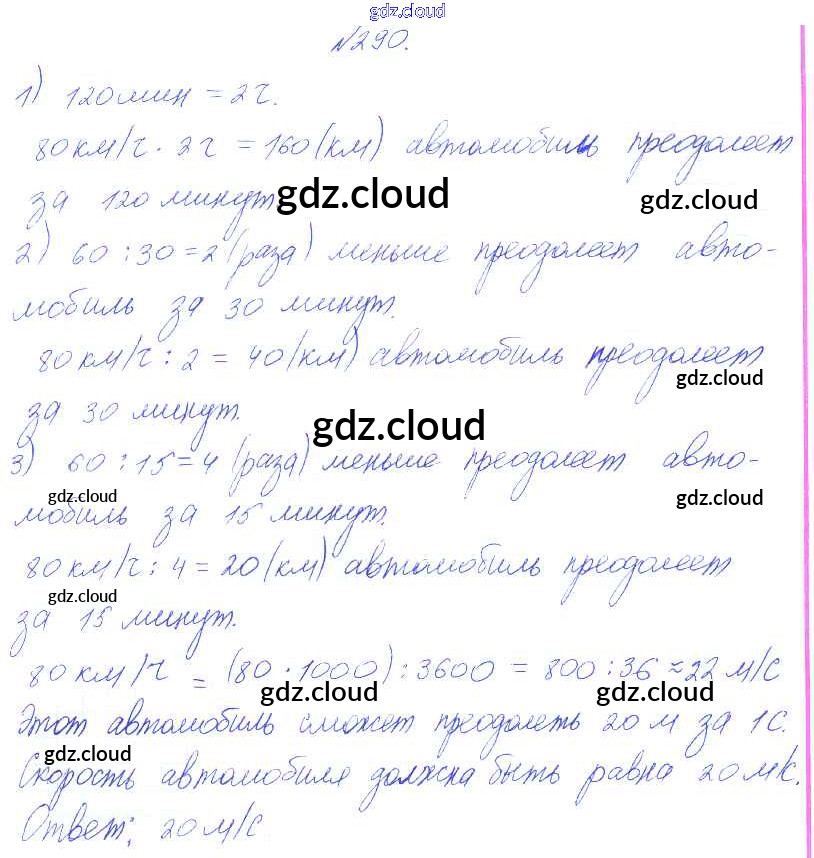 gdz.cloud
№290.
1) 120 мин = 2 ч.
80 км/ч · 2 ч = 160 (км) автомобиль преодолеет
за 120 минут
gdz.cloud
gdz.cloud
2) 60 : 30 = 2 (раза) меньше преодолеет авто-
мобиль за 30 минут.
80 км/ч : 2 = 40 (км) автомобиль преодолеет
gdz.cloud
за 30 минут.
gdz.cloud
3) 60 : 15 = 4 (раза) меньше преодолеет авто-
gdz.cloud
gdz.cloud
мобиль за 15 минут.
80 км/ч : 4 = 20 (км) автомобиль преодолеет
gdz.cloud
за 15 минут.
80 км/ч = (80 · 1000) : 3600 = 800 : 36 ≈ 22 м/с
gdz.cloud
gdz.cloud
Этот автомобиль сможет преодолеть 20 м за 1 с.
gdz.cloud
Скорость автомобиля должна быть равна 20 м/с.
Ответ: 20 м/с
gdz.cloud